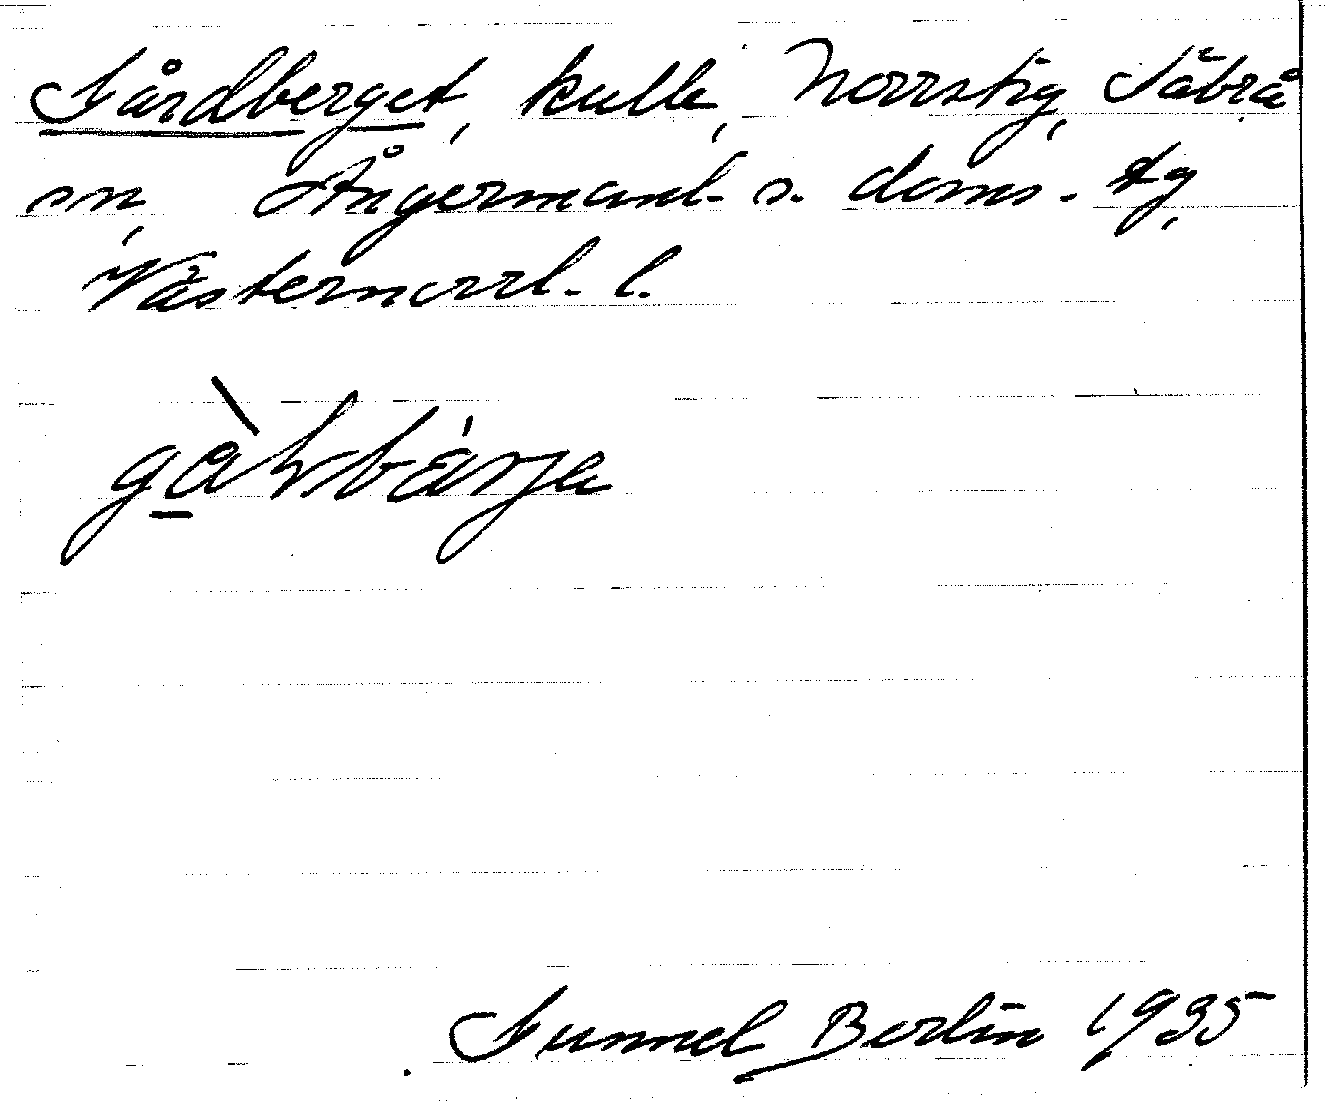 Gårdberget, kulle, Norrstig, Säbrå
sn, Ångermanl. s. doms. tg,
Västernorrl. l.
gàḷbárja
Gunnel Berlin 1935